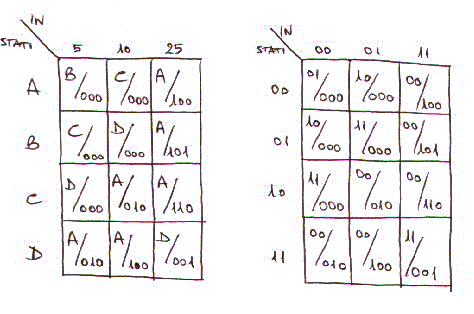 IN IN
STATI 5 10 25 STATI 00 01 11
A B/000 C/000 A/100 00 01/000 10/000 00/100
B C/000 D/000 A/101 01 10/000 11/000 00/101
C D/000 A/010 A/110 10 11/000 00/010 00/110
D A/010 A/100 D/001 11 00/010 00/100 11/001